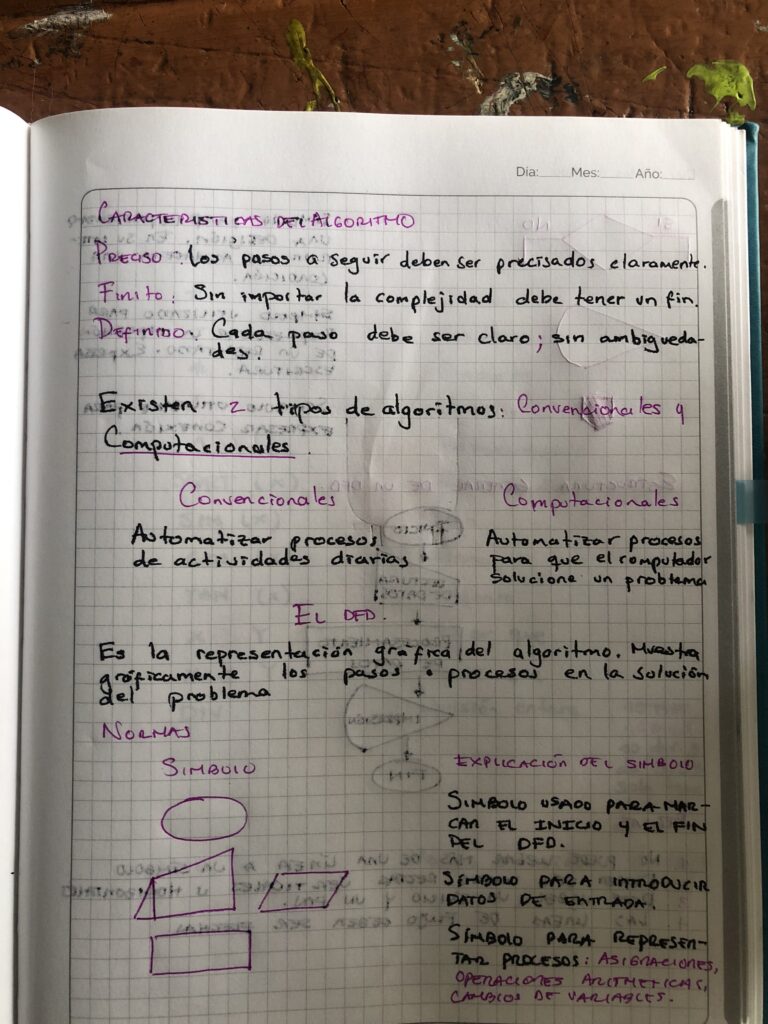 Día: Mes: Año:
CARACTERISTICAS DEL ALGORITMO
PRECISO los pasos a seguir deben ser precisados claramente.
Finito: Sin importar la complejidad debe tener un fin.
DEFINIDO. Cada paso debe ser claro; sin ambigueda-
des.
Existen 2 tipos de algoritmos: Convencionales y
Computacionales.
Convencionales
Automatizar procesos
de actividades diarias
Computacionales
Automatizar procesos
para que el computador
solucione un problema
EL DFD.
Es la representación gráfica del algoritmo. Muestra
gráficamente los pasos o procesos en la solución
del problema
NORMAS
SIMBOLO
EXPLICACIÓN DEL SIMBOLO
SIMBOLO USADO PARA MAR-
CAR EL INICIO Y EL FIN
DEL DFD.
SIMBOLO PARA INTRODUCIR
DATOS DE ENTRADA.
SIMBOLO PARA REPRESEN-
TAR PROCESOS: ASIGNACIONES,
OPERACIONES ARITMETICAS,
CAMBIOS DE VARIABLES.